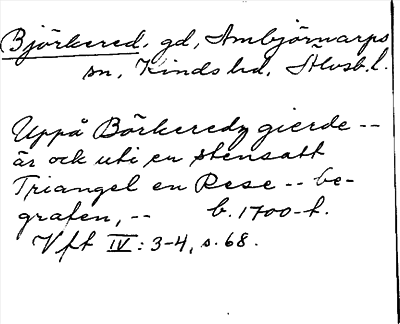 Björkered, gd, Ambjörnarps
sn, Kinds hd, Älvsb.l.
Uppå Börkeredz gierde --
är ock uti en stensatt
Triangel en Rese -- be-
grafen, -- b. 1700-t.
Vft IV: 3-4, s. 68.